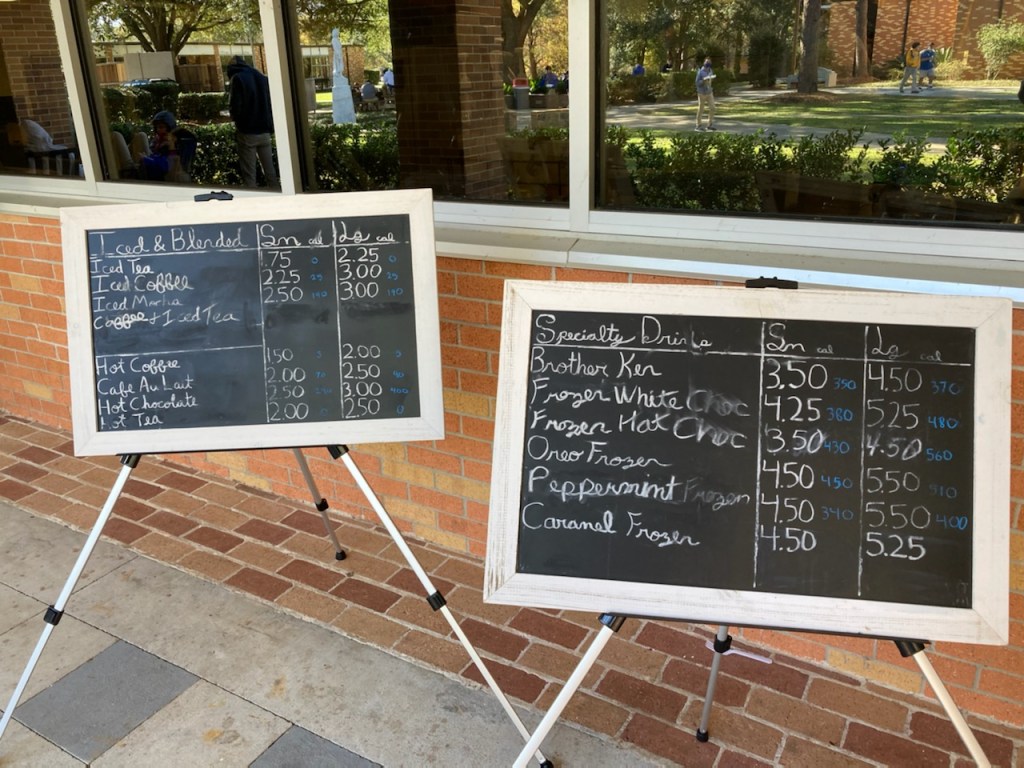 Iced & Blended Sm cal Lg cal
Iced Tea 1.75 0 2.25 0
Iced Coffee 2.25 3.00
Iced Mocha 2.50 3.00
Coffee + Iced Tea
Hot Coffee 1.50 2.00
Cafe Au Lait 2.00 2.50
Hot Chocolate 2.50 3.00 400
Hot Tea 2.00 0 2.50 0
Specialty Drinks Sm cal Lg cal
Brother Ken 3.50 350 4.50 370
Frozen White Choc 4.25 380 5.25 480
Frozen Hot Choc 3.50 430 4.50 560
Oreo Frozen 4.50 450 5.50
Peppermint Frozen 4.50 340 5.50 400
Caramel Frozen 4.50 5.25